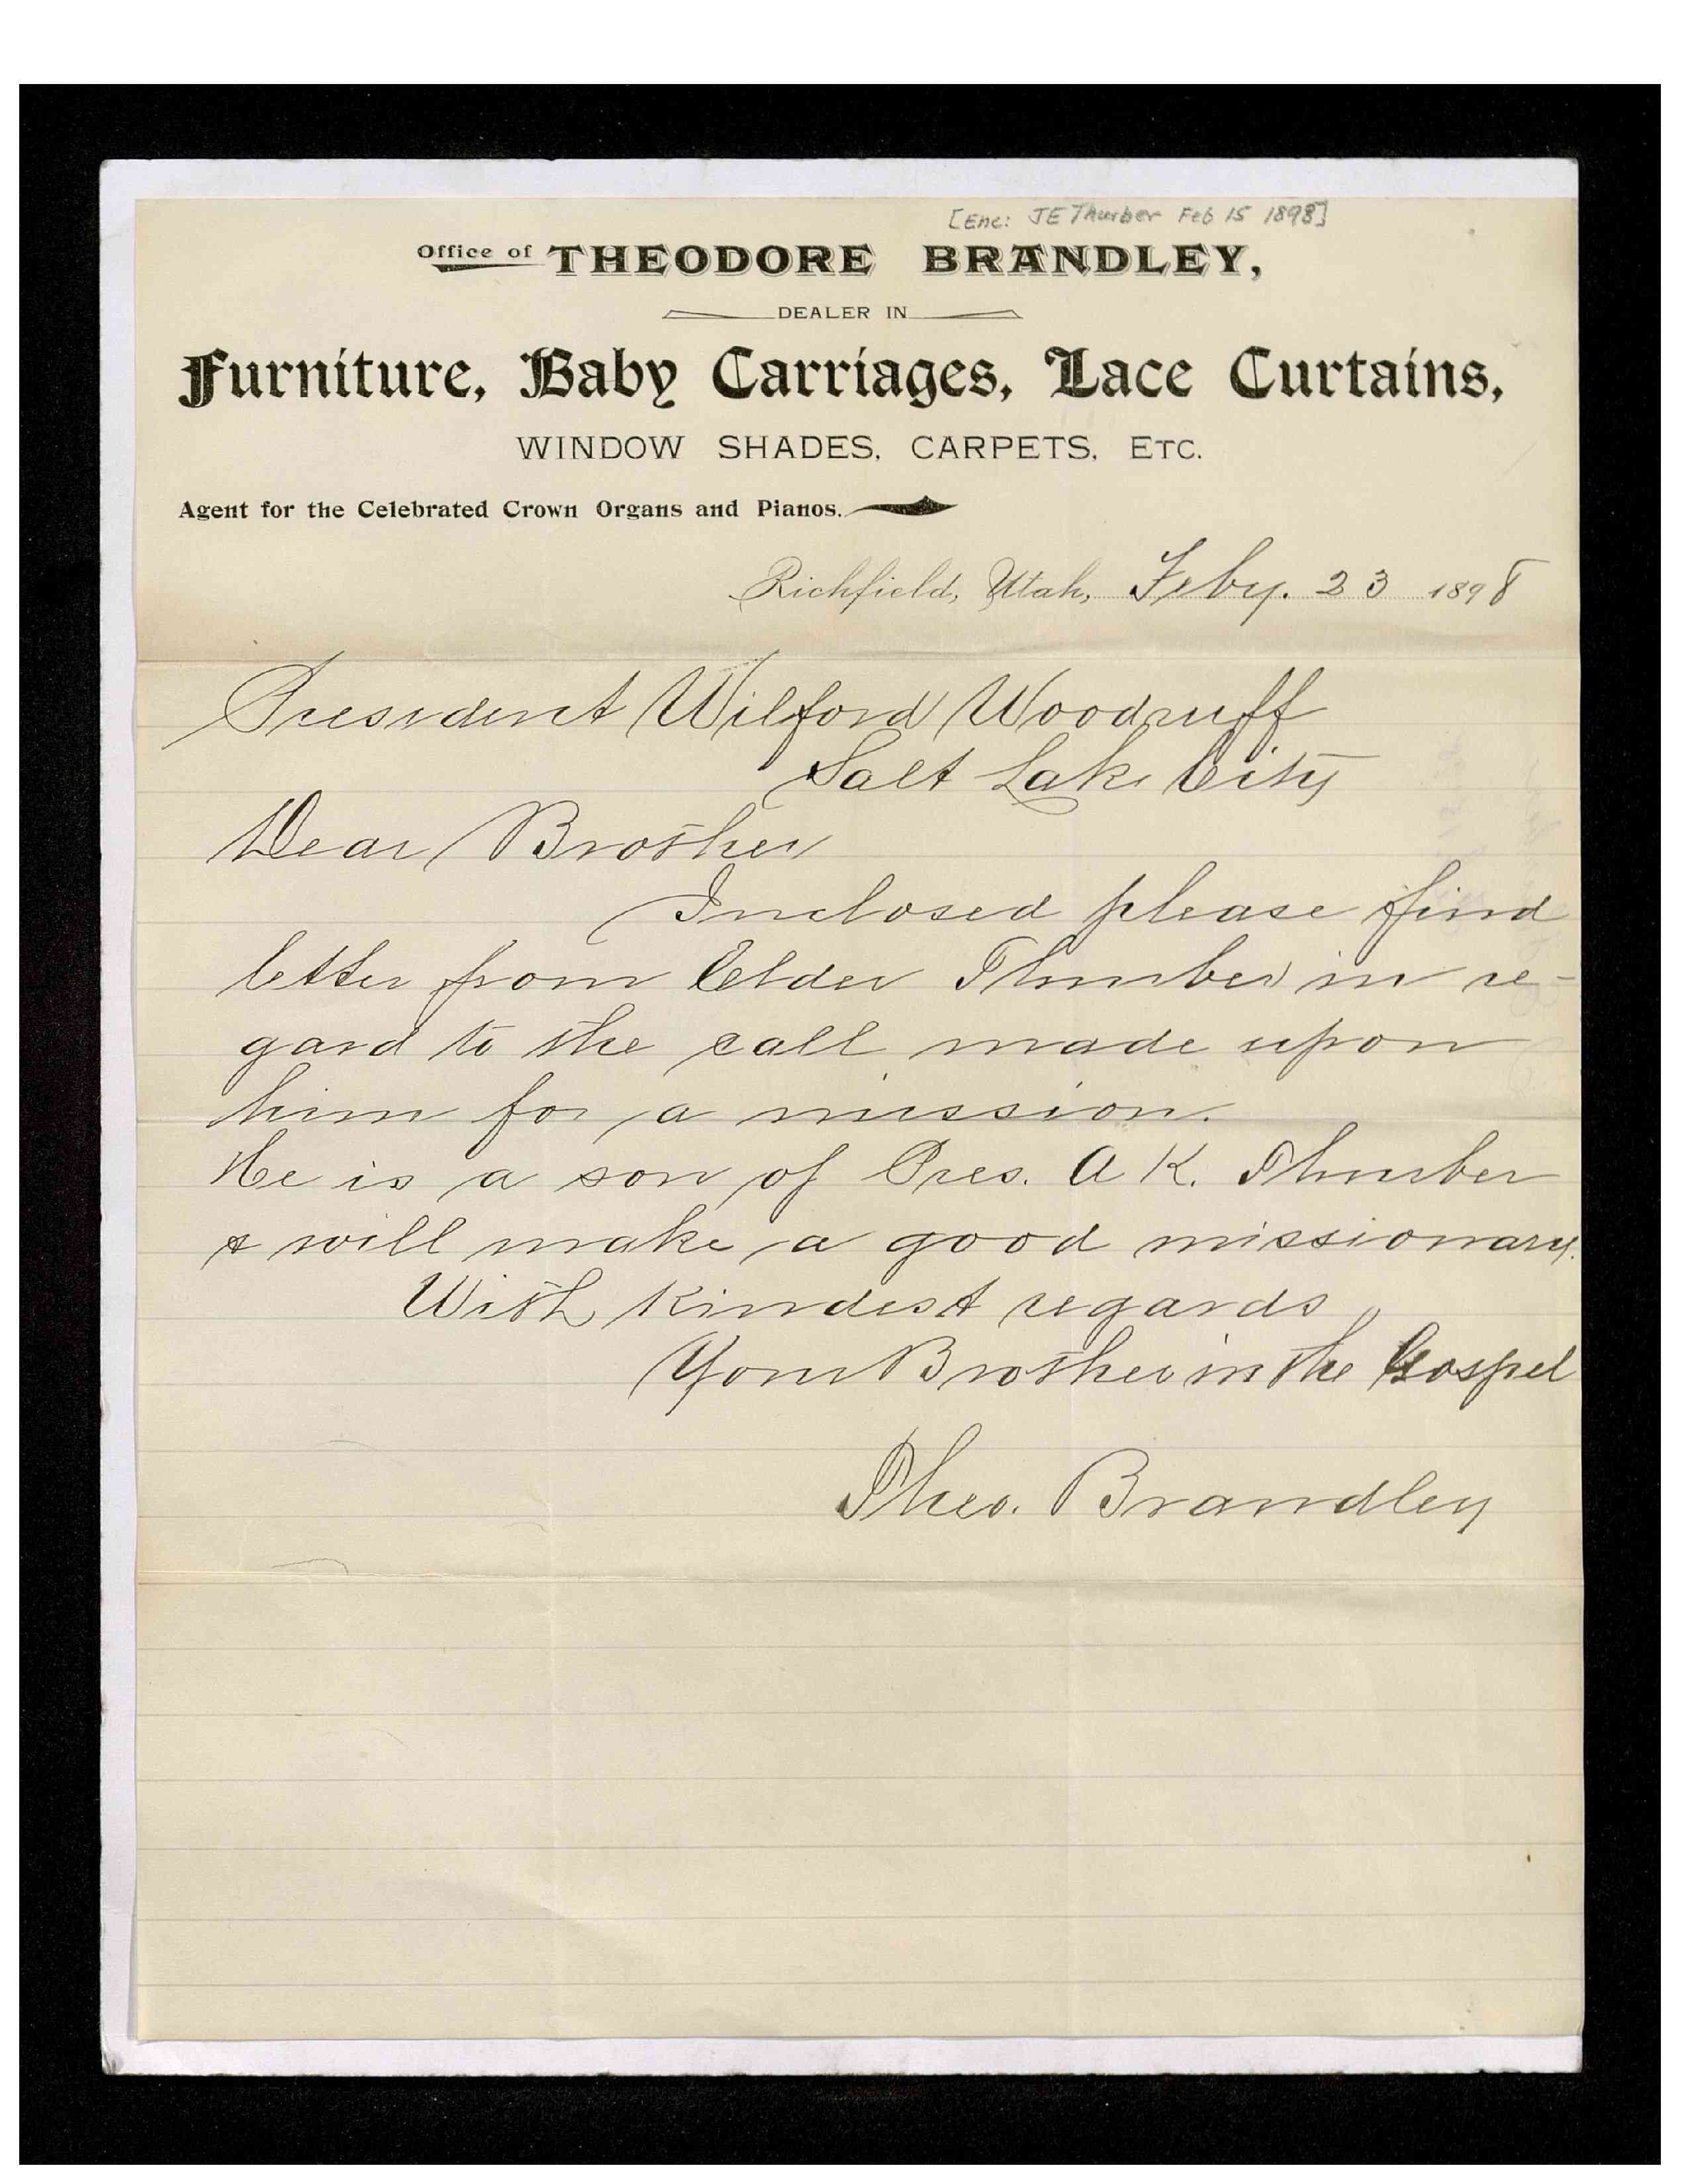 [Enc: JE Thurber Feb 15 1898]
Office of THEODORE BRANDLEY,
DEALER IN
Furniture, Baby Carriages, Lace Curtains,
WINDOW SHADES, CARPETS, ETC.
Agent for the Celebrated Crown Organs and Pianos.
Richfield, Utah, Feby. 23 1898
President Wilford Woodruff
Salt Lake City
Dear Brother
Inclosed please find
letter from Elder Thurber in re-
gard to the call made upon
him for a mission.
He is a son of Pres. A K. Thurber
& will make a good missionary.
With Kindest regards
Your Brother in the Gospel
Theo. Brandley